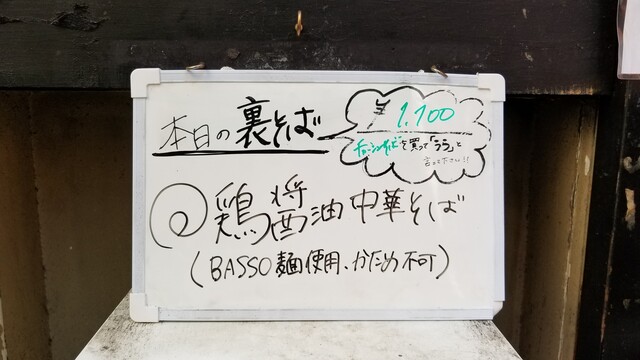 本日の裏そば
¥1,100
を買って「うら」と
言ってください!!
鶏醤油中華そば
(BASSO麺使用、かため不可)